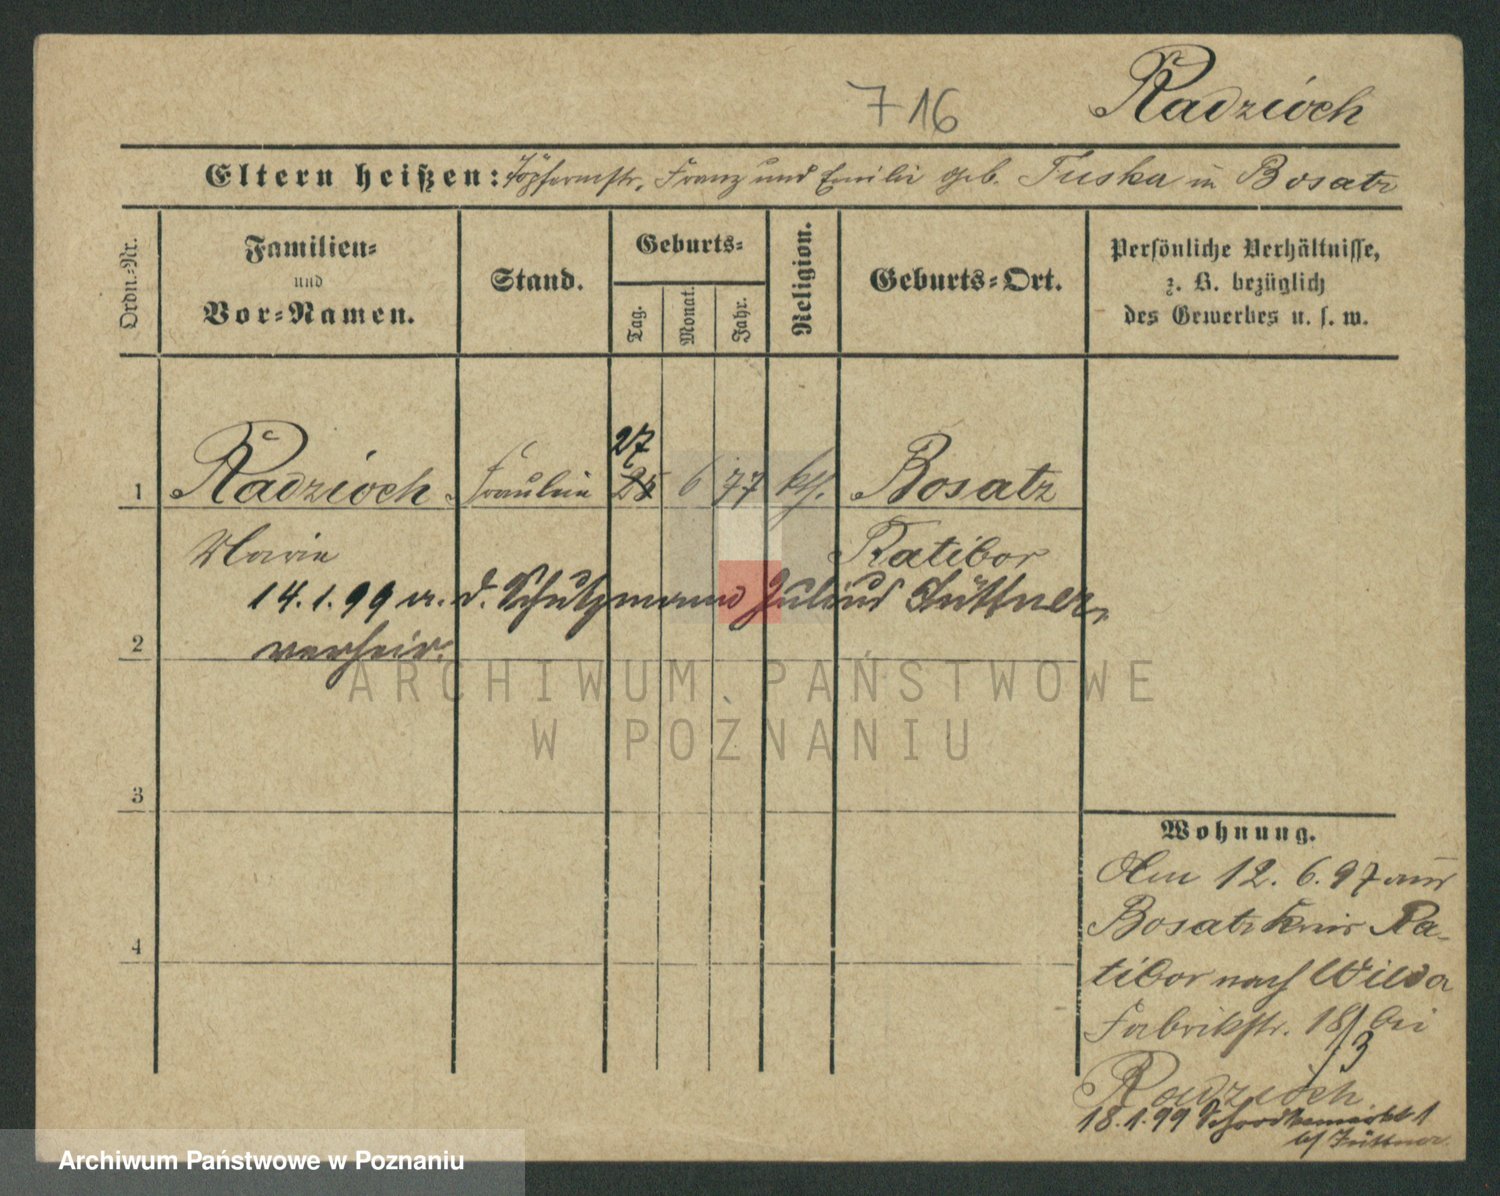 716
Radzioch
Eltern heißen: Töpfermstr. Franz und Emilie geb. Tuska in Bosatz
Ordn.-Nr.
Familien-
und
Vor-Namen.
Stand.
Geburts-
Tag.
Monat.
Jahr.
Religion.
Geburts-Ort.
Persönliche Verhältnisse,
z. B. bezüglich
des Gewerbes u. s. w.
27
1 Radzioch Fräulein 25 6 77 kth. Bosatz
Marie Ratibor
14.1.99 m. d. Schutzmann Julius Hüttner
2 verheir.
ARCHIWUM PAŃSTWOWE
W POZNANIU
3
4
Wohnung.
Am 12. 6. 97 aus
Bosatz Kreis Ra-
tibor nach Wilda
Fabrikstr. 18 bei
/3
Radzioch
18.1.99 1
b/ Hüttner
Archiwum Państwowe w Poznaniu